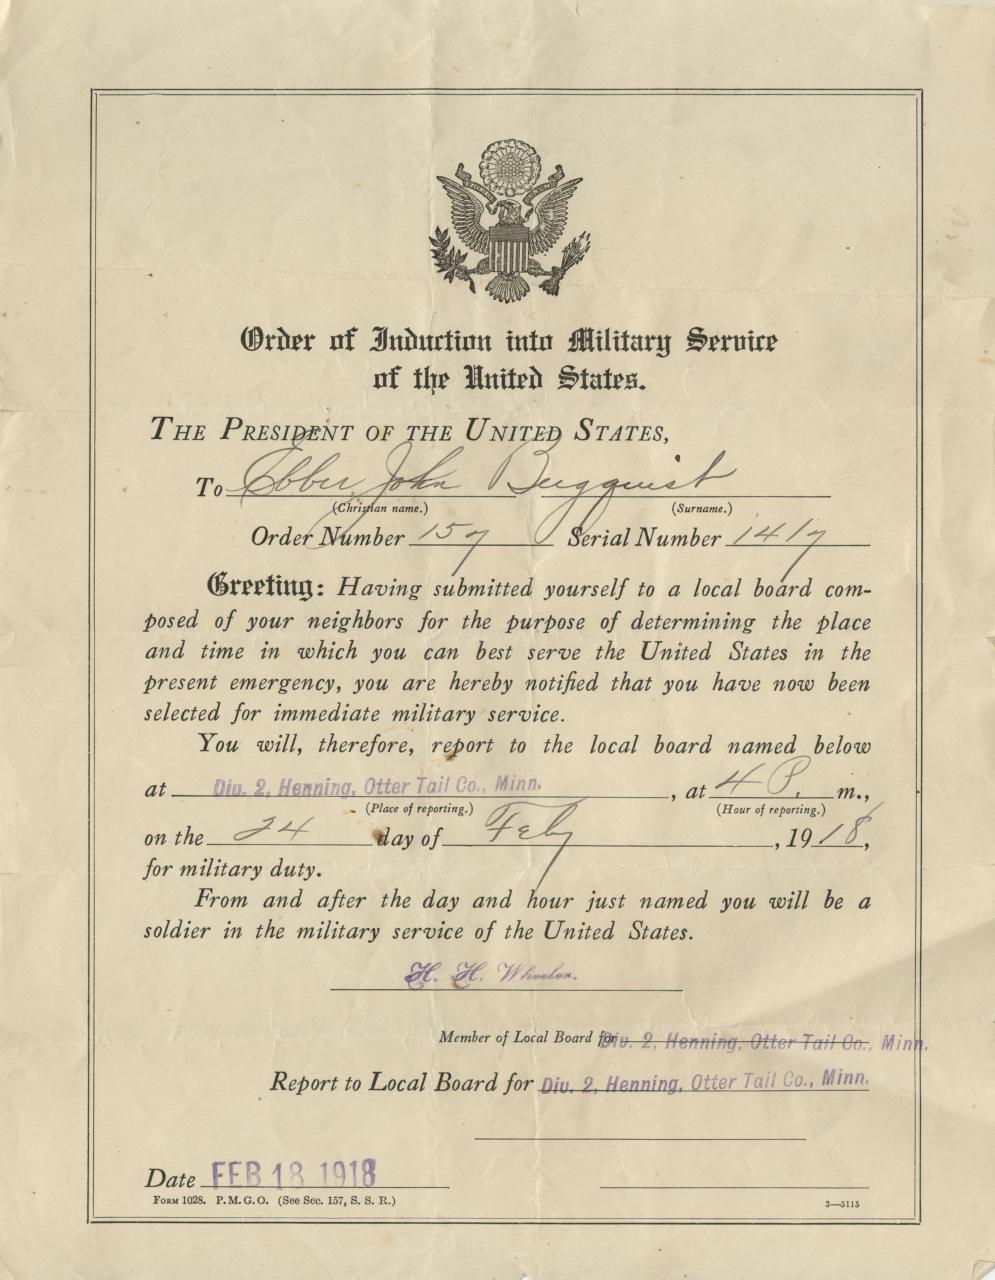 Order of Induction into Military Service
of the United States.
THE PRESIDENT OF THE UNITED STATES,
To Ebber John Bergquist
(Christian name.) (Surname.)
Order Number 157 Serial Number 1417
Greeting: Having submitted yourself to a local board com-
posed of your neighbors for the purpose of determining the place
and time in which you can best serve the United States in the
present emergency, you are hereby notified that you have now been
selected for immediate military service.
You will, therefore, report to the local board named below
at Div. 2, Henning, Otter Tail Co., Minn. , at 4 P. m.,
(Place of reporting.) (Hour of reporting.)
on the 24 day of Feby , 1918,
for military duty.
From and after the day and hour just named you will be a
soldier in the military service of the United States.
H. H. Wheeler.
Member of Local Board for Div. 2, Henning, Otter Tail Co., Minn.
Report to Local Board for Div. 2, Henning, Otter Tail Co., Minn.
Date FEB 18 1918
FORM 1028. P. M. G. O. (See Sec. 157, S. S. R.) 3—5115